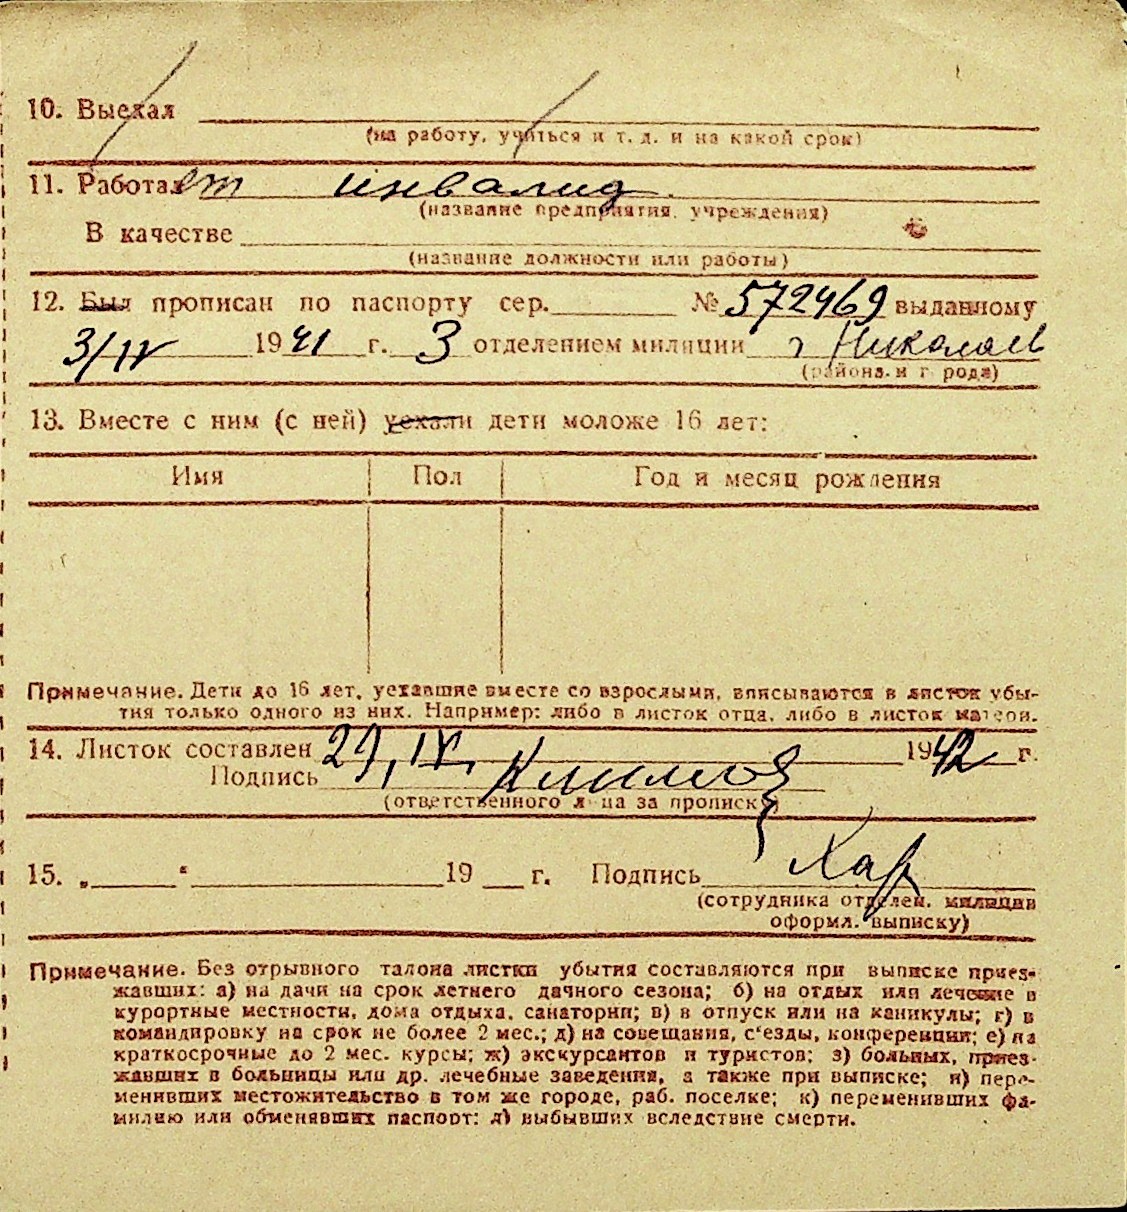 10. Выехал
(на работу, учиться и т. д. и на какой срок)
11. Работает инвалид.
(название предприятия, учреждения)
В качестве
(название должности или работы)
12. Был прописан по паспорту сер. № 572469 выданному
3/IV 1941 г. 3 отделением милиции г Николаев
(района и города)
13. Вместе с ним (с ней) уехали дети моложе 16 лет:
Имя Пол Год и месяц рождения
Примечание. Дети до 16 лет, уехавшие вместе со взрослыми, вписываются в листок убы-
тия только одного из них. Например: либо в листок отца, либо в листок матери.
14. Листок составлен 29, IV, 1942 г.
Подпись
(ответственного лица за прописку)
15. „ “ 19 г. Подпись Хар
(сотрудника отделен. милиции
оформл. выписку)
Примечание. Без отрывного талона листки убытия составляются при выписке приез-
жавших: а) на дачи на срок летнего дачного сезона; б) на отдых или лечение в
курортные местности, дома отдыха, санатории; в) в отпуск или на каникулы; г) в
командировку на срок не более 2 мес.; д) на совещания, с'езды, конференции; е) на
краткосрочные до 2 мес. курсы; ж) экскурсантов и туристов; з) больных, приез-
жавших в больницы или др. лечебные заведения, а также при выписке; и) пере-
менивших местожительство в том же городе, раб. поселке; к) переменивших фа-
милию или обменявших паспорт; л) выбывших вследствие смерти.